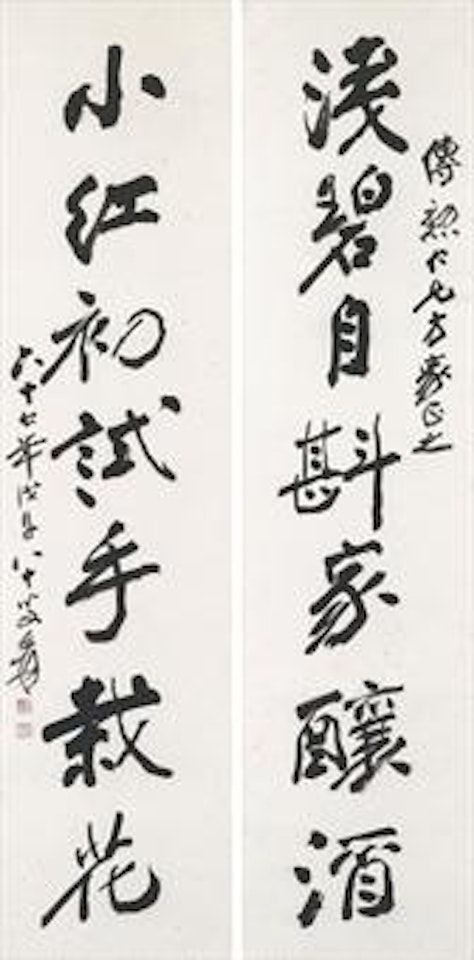 仁兄方家正之
淺碧自斟家釀酒
小紅初試手栽花
六十七年戊午 八十叟爰